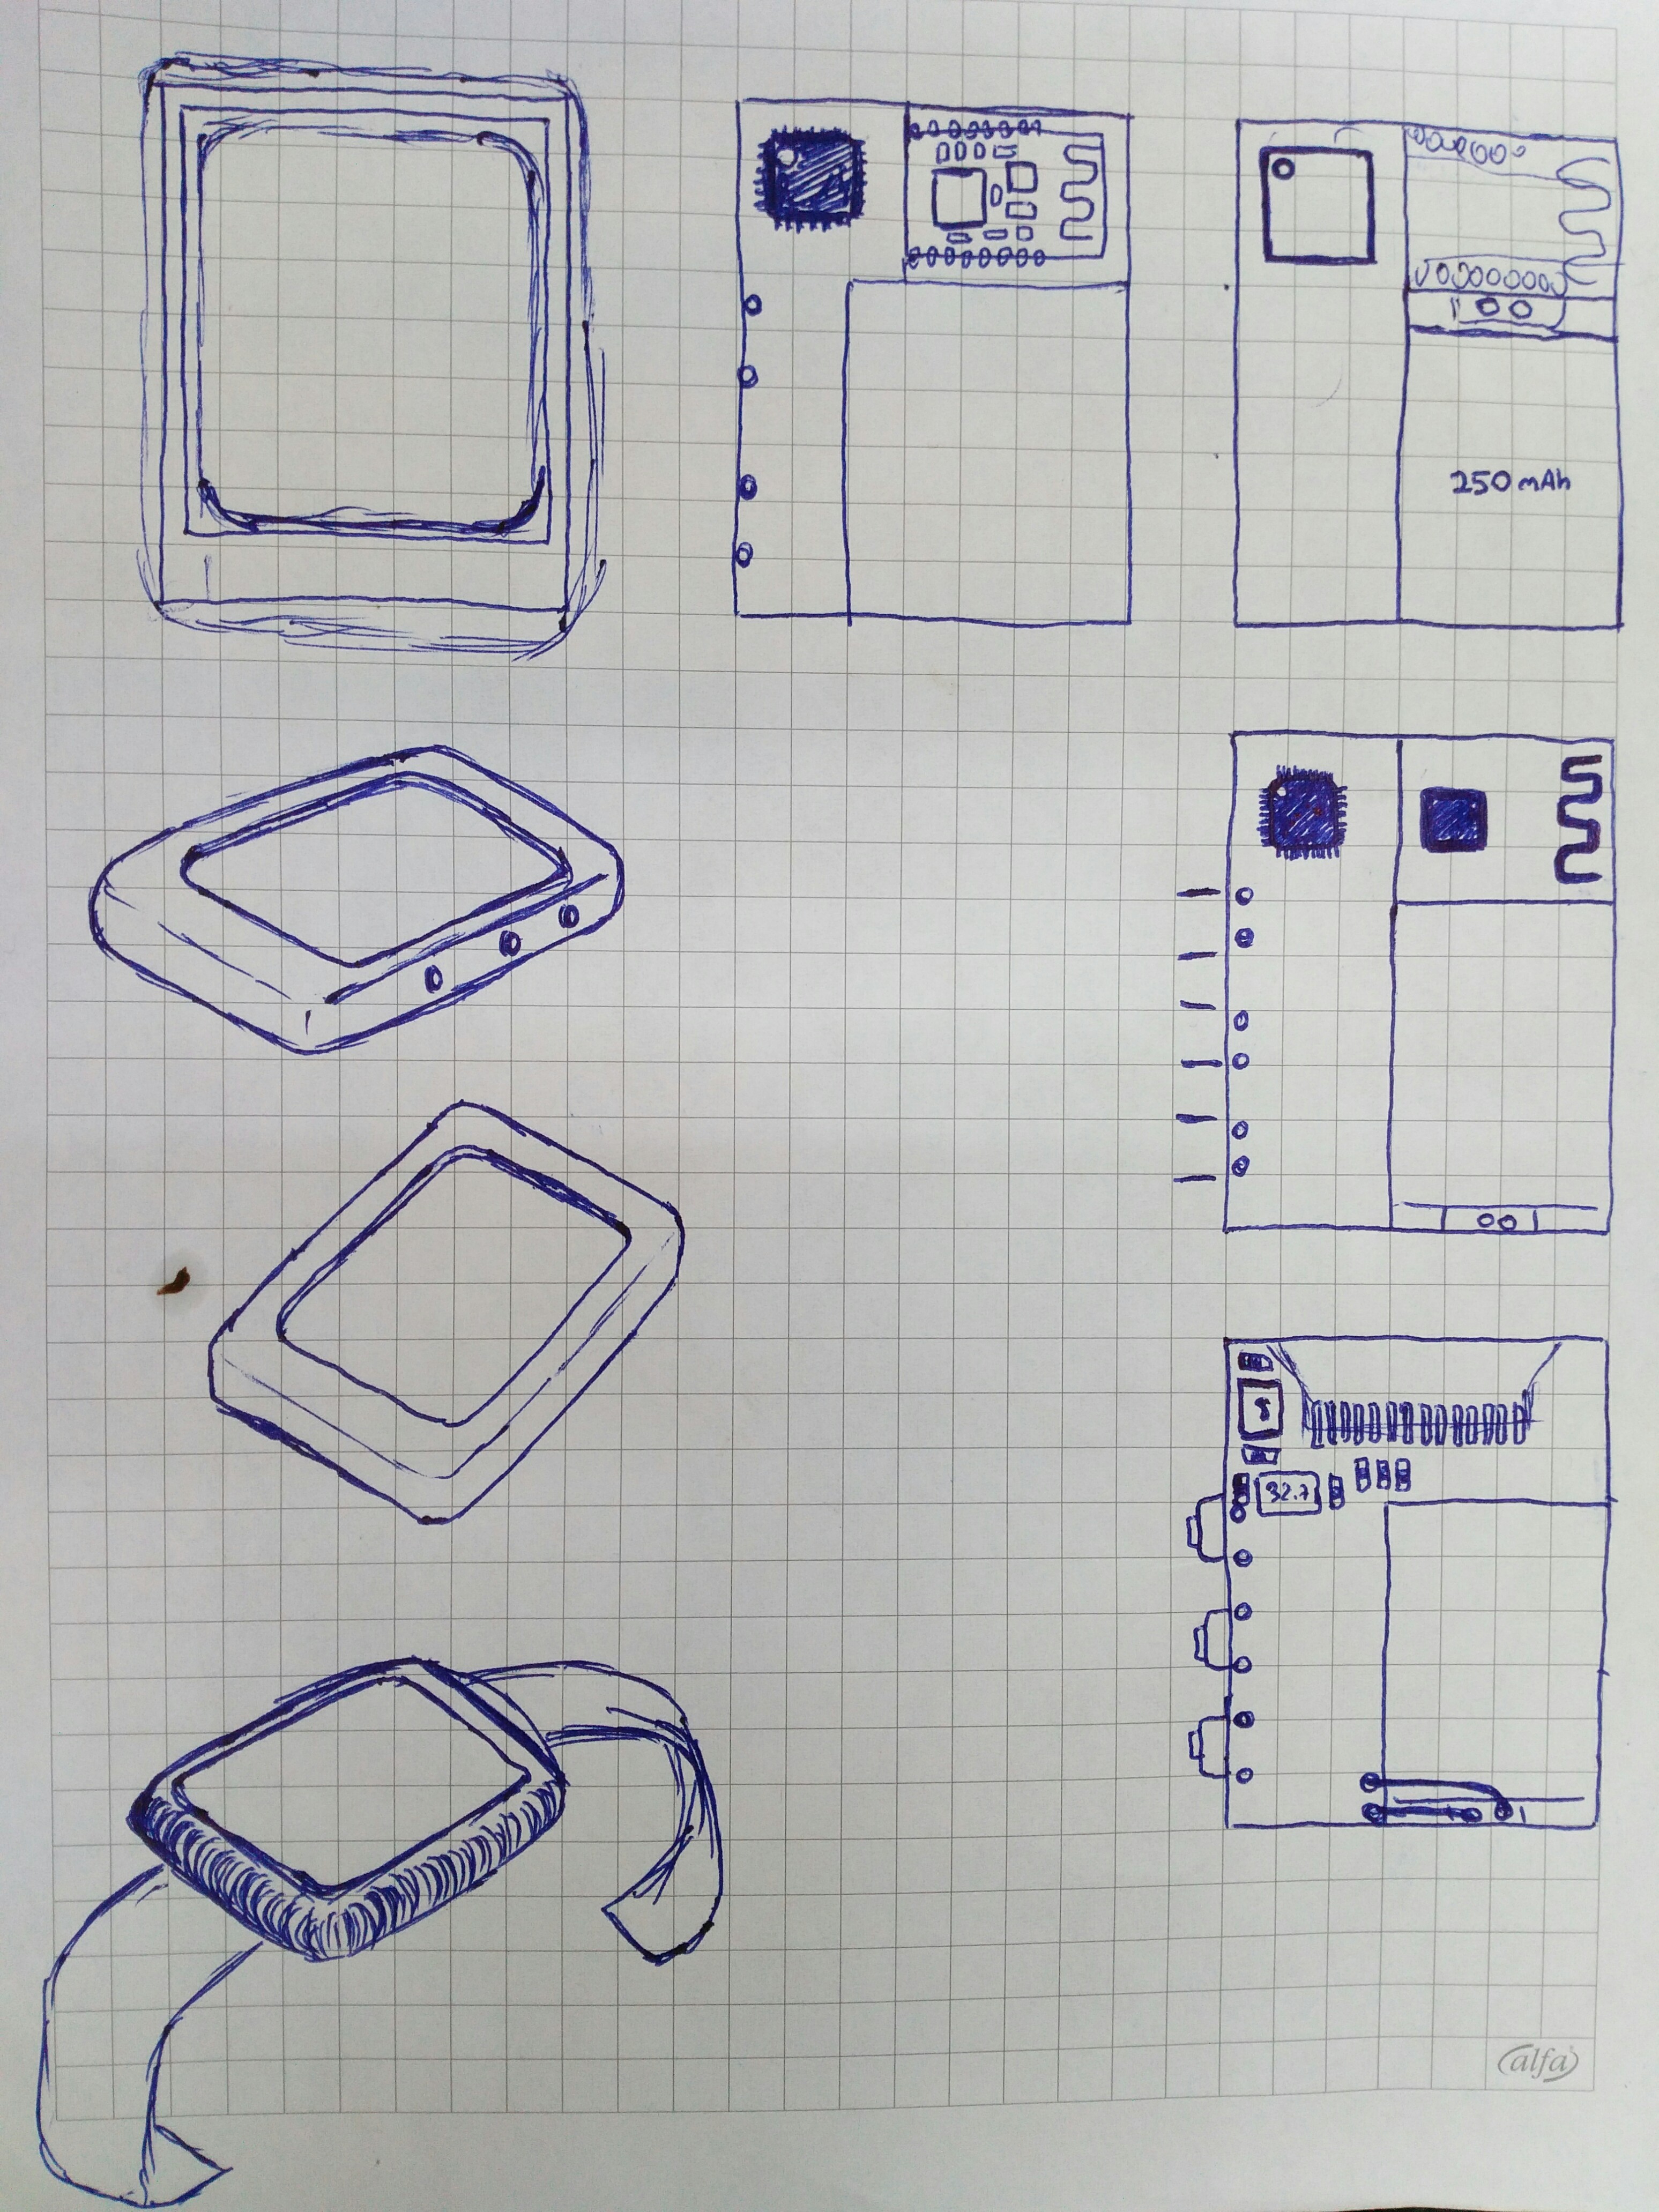 250 mAh
32.7
alfa